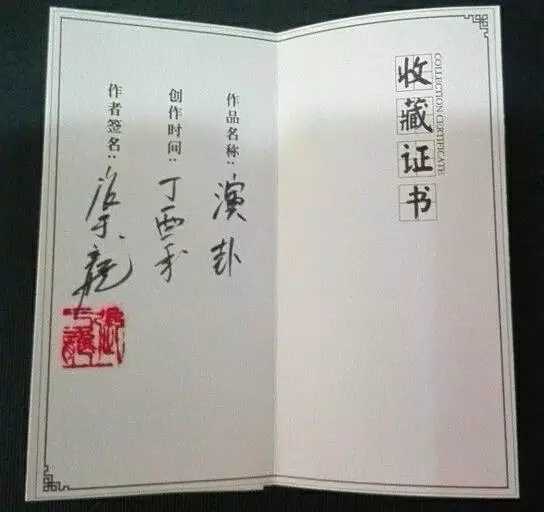 收藏证书
COLLECTION CERTIFICATE
作品名称：演卦
创作时间：丁酉秋
作者签名：